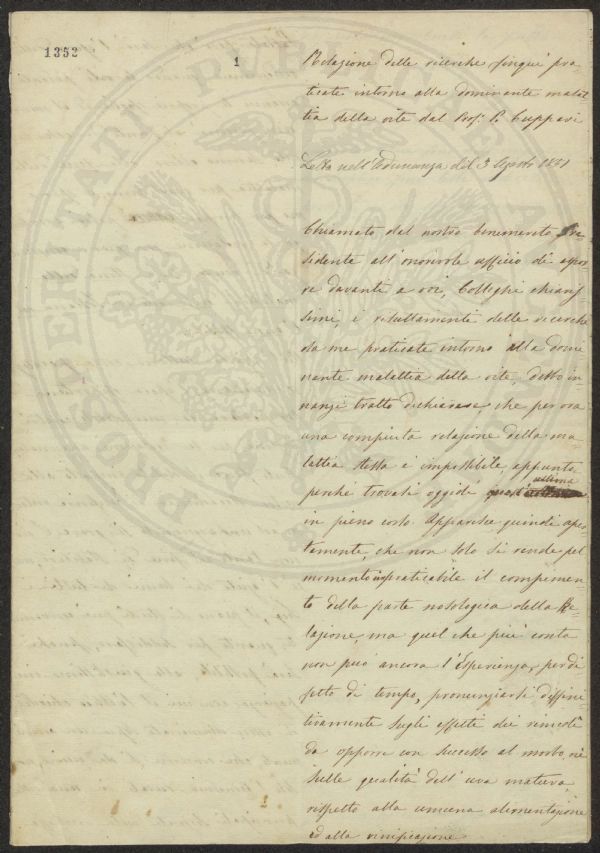 1352
1
Relazione delle ricerche finqui pra
ticate intorno alla dominante malat
tia della vite dal Prof. P. Cuppari
Letta nell'Adunanza del 3 Agosto 1851
Chiamato dal nostro benemerito Pre
sidente all'onorevole ufficio di espor
re davanti a voi, Colleghi chiaris
simi, i resultamenti delle ricerche
da me praticate intorno alla domi
nante malattia della vite, debbo in
nanzi tratto dichiarare, che per ora
una compiuta relazione della ma
lattia stessa è impossibile appunto
perché trovasi oggidì quest'ultima
in pieno corso. Apparisce quindi aper
tamente, che non solo si rende pel
momento impraticabile il compimen
to della parte nosologica della Re
lazione, ma quel che più conta
non può ancora l'Esperienza, per di
fetto di tempo, pronunziarsi diffini
tivamente sugli effetti dei rimedi
da opporre con successo al morbo, nè
sulle qualità dell'uva matura,
rispetto alla comune alimentazione
ed alla vinificazione.
1
PROSPERITATI PUBLICAE A